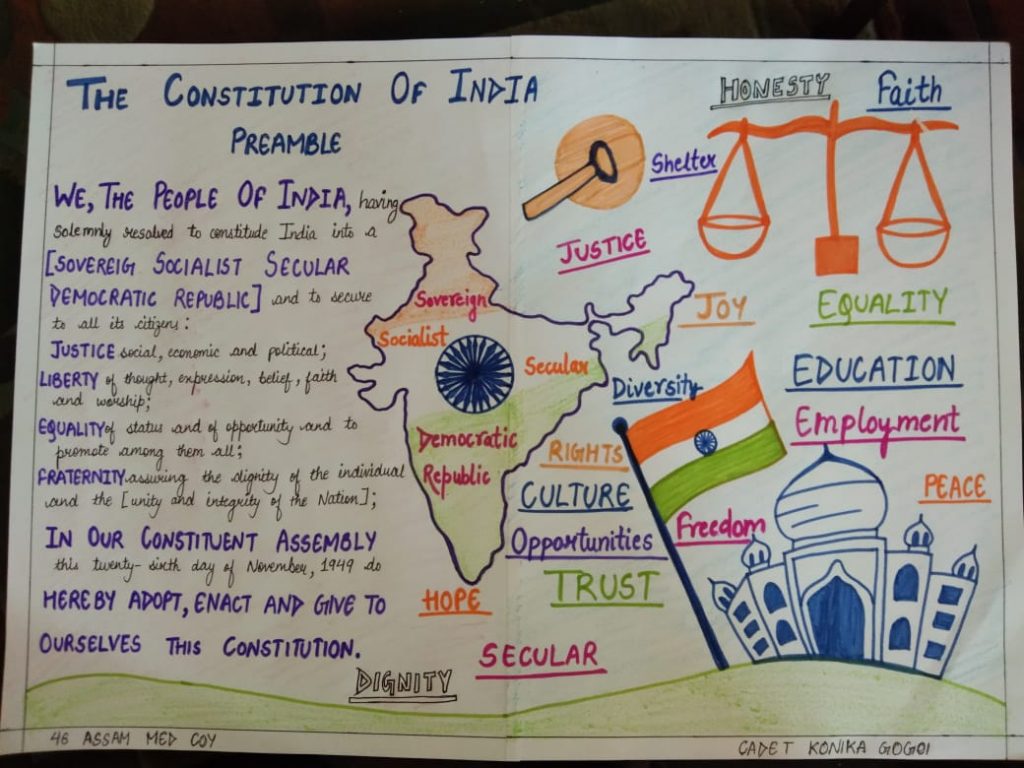 THE CONSTITUTION OF INDIA
PREAMBLE
WE, THE PEOPLE OF INDIA, having
solemnly resolved to constitute India into a
[SOVEREIG SOCIALIST SECULAR
DEMOCRATIC REPUBLIC] and to secure
to all its citizens:
JUSTICE social, economic and political;
LIBERTY of thought, expression, belief, faith
and worship;
EQUALITY of status and of opportunity and to
promote among them all;
FRATERNITY assuring the dignity of the individual
and the [unity and integrity of the Nation];
IN OUR CONSTITUENT ASSEMBLY
this twenty-sixth day of November, 1949 do
HEREBY ADOPT, ENACT AND GIVE TO
OURSELVES THIS CONSTITUTION.
Sovereign
Socialist
Secular
Democratic
Republic
HONESTY
Faith
Shelter
JUSTICE
JOY
EQUALITY
Diversity
EDUCATION
Employment
RIGHTS
CULTURE
PEACE
Opportunities
Freedom
TRUST
HOPE
SECULAR
DIGNITY
46 ASSAM MED COY
CADET KONIKA GOGOI